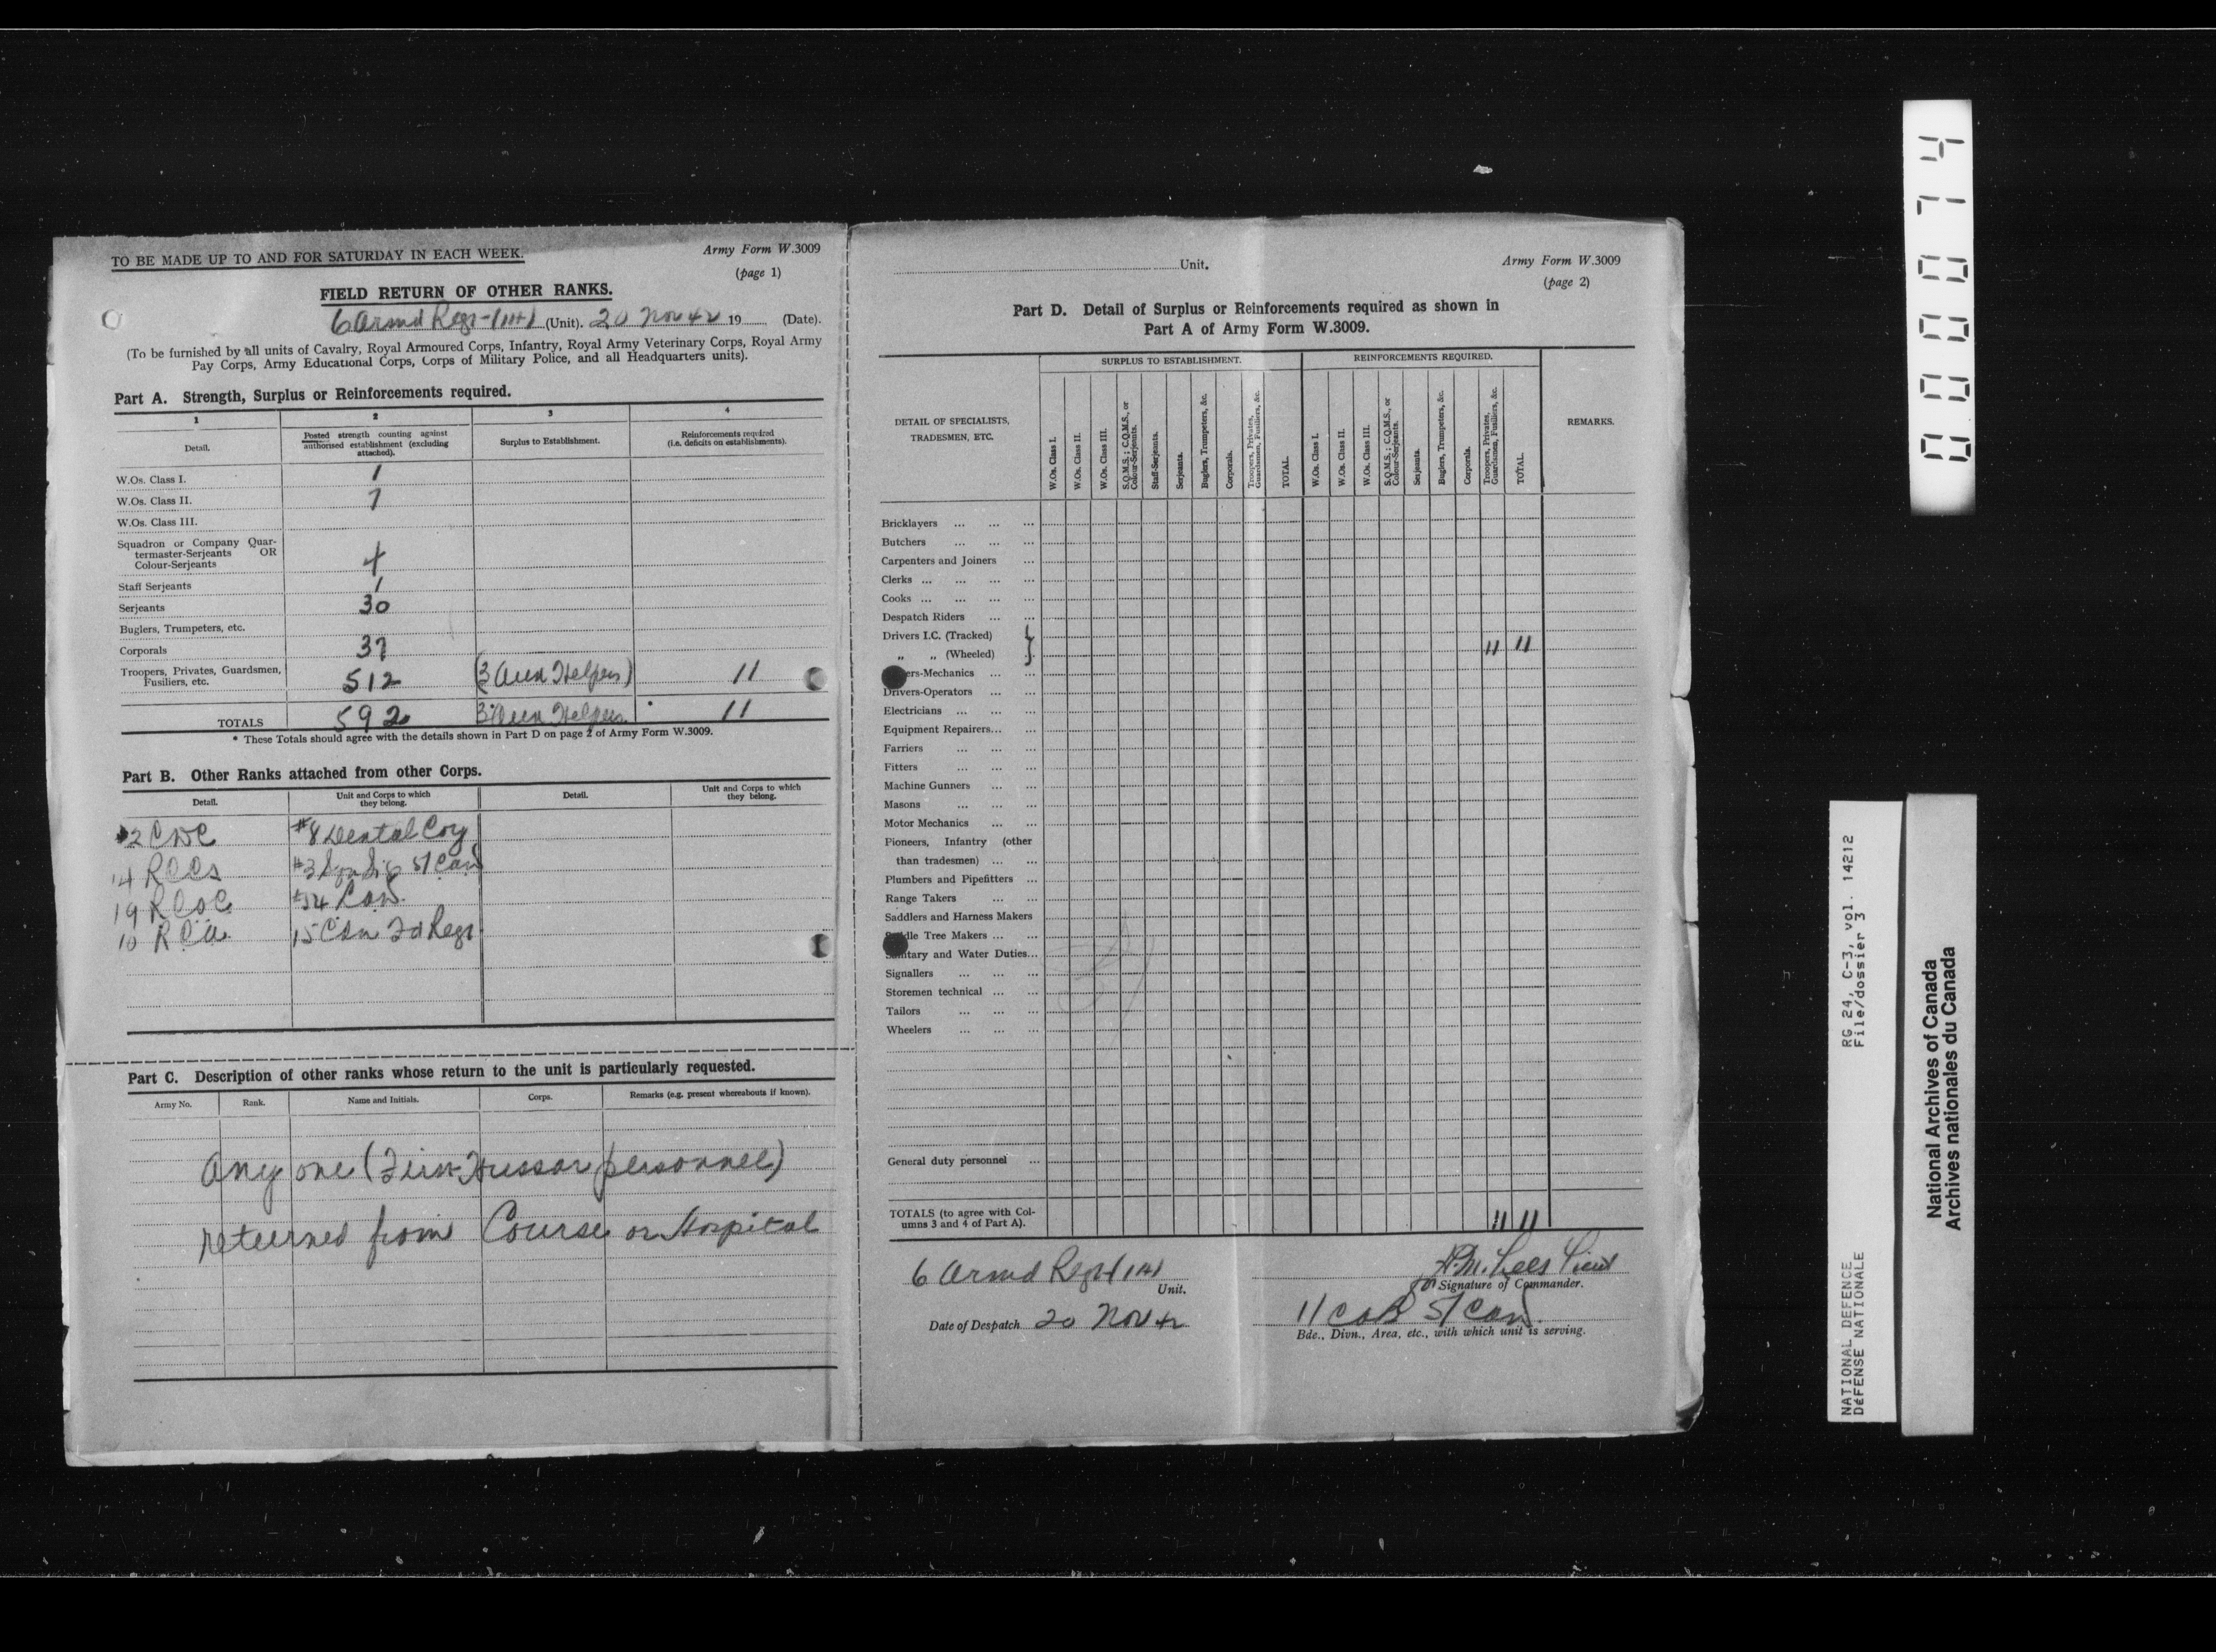 TO BE MADE UP TO AND FOR SATURDAY IN EACH WEEK.
Army Form W.3009
(page 1)
FIELD RETURN OF OTHER RANKS.
6 Armd Regt (1H) (Unit). 20 Nov 42 19 (Date).
(To be furnished by all units of Cavalry, Royal Armoured Corps, Infantry, Royal Army Veterinary Corps, Royal Army
Pay Corps, Army Educational Corps, Corps of Military Police, and all Headquarters units).
Part A. Strength, Surplus or Reinforcements required.
1 2 3 4
Detail. Posted strength counting against authorised establishment (excluding attached). Surplus to Establishment. Reinforcements required (i.e. deficits on establishments).
W.Os. Class I. 1
W.Os. Class II. 7
W.Os. Class III.
Squadron or Company Quar-
termaster-Serjeants OR
Colour-Serjeants 4
Staff Serjeants 1
Serjeants 30
Buglers, Trumpeters, etc.
Corporals 37
Troopers, Privates, Guardsmen,
Fusiliers, etc. 512 (3 Aux Helpers) 11
TOTALS 592 3 Aux Helpers 11
* These Totals should agree with the details shown in Part D on page 2 of Army Form W.3009.
Part B. Other Ranks attached from other Corps.
Detail. Unit and Corps to which they belong. Detail. Unit and Corps to which they belong.
2 CDC #8 Dental Coy
14 RCCS #3 Sqn Sig 5/Cad
19 RCOC #54 CAD
10 RCA 15 Cdn Fd Regt
Part C. Description of other ranks whose return to the unit is particularly requested.
Army No. Rank. Name and Initials. Corps. Remarks (e.g. present whereabouts if known).
Any one (First Hussar personnel)
returned from Course or Hospital
Unit.
Army Form W.3009
(page 2)
Part D. Detail of Surplus or Reinforcements required as shown in
Part A of Army Form W.3009.
DETAIL OF SPECIALISTS,
TRADESMEN, ETC.
SURPLUS TO ESTABLISHMENT. REINFORCEMENTS REQUIRED. REMARKS.
W.Os. Class I.
W.Os. Class II.
W.Os. Class III.
S.Q.M.S.; C.Q.M.S., or Colour-Serjeants.
Staff-Serjeants.
Serjeants.
Buglers, Trumpeters, &c.
Corporals.
Troopers, Privates, Guardsmen, Fusiliers, &c.
TOTAL.
W.Os. Class I.
W.Os. Class II.
W.Os. Class III.
S.Q.M.S.; C.Q.M.S., or Colour-Serjeants.
Serjeants.
Buglers, Trumpeters, &c.
Corporals.
Troopers, Privates, Guardsmen, Fusiliers, &c.
TOTAL.
Bricklayers ... ... ...
Butchers ... ... ...
Carpenters and Joiners ...
Clerks ... ... ... ...
Cooks ... ... ... ...
Despatch Riders ... ...
Drivers I.C. (Tracked)
„ „ (Wheeled) } 11 11
ers-Mechanics ... ...
Drivers-Operators ... ...
Electricians ... ... ...
Equipment Repairers... ...
Farriers ... ... ...
Fitters ... ... ...
Machine Gunners ... ...
Masons ... ... ...
Motor Mechanics ... ...
Pioneers, Infantry (other
than tradesmen) ... ...
Plumbers and Pipefitters ...
Range Takers ... ...
Saddlers and Harness Makers
Saddle Tree Makers ... ...
Sanitary and Water Duties...
Signallers ... ... ...
Storemen technical ... ...
Tailors ... ... ...
Wheelers ... ... ...
General duty personnel ...
TOTALS (to agree with Col-
umns 3 and 4 of Part A). 11 11
6 Armd Regt (1H)
Unit.
Date of Despatch 20 Nov 42
Lees Lieut
for Signature of Commander.
11 CAB 5/CAD
Bde., Divn., Area, etc., with which unit is serving.
000074
NATIONAL DEFENCE RG 24, C-3, vol. 14212
DÉFENSE NATIONALE File/dossier 3
National Archives of Canada
Archives nationales du Canada